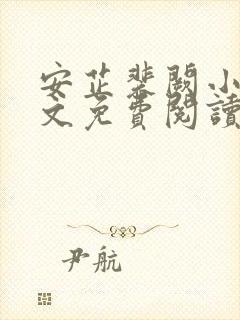 安芷裴闕小
文免費閱讀
尹航